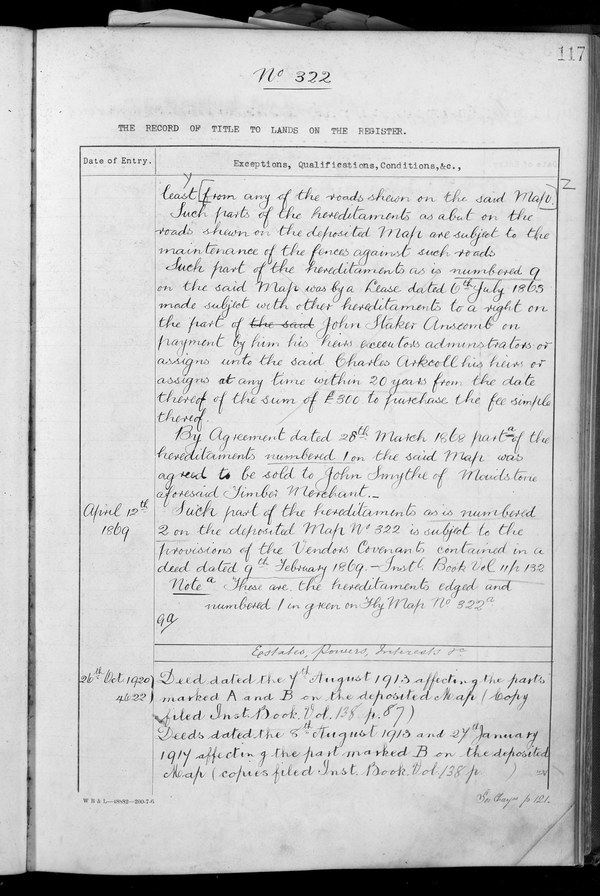 117
No 322
THE RECORD OF TITLE TO LANDS ON THE REGISTER.
Date of Entry.
Exceptions, Qualifications, Conditions, &c.,
least [from any of the roads shewn on the said Map.] Z
Such parts of the hereditaments as abut on the
roads shewn on the deposited Map are subject to the
maintenance of the fences against such roads
Such part of the hereditaments as is numbered 9
on the said Map was by a Lease dated 6th July 1863
made subject with other hereditaments to a right on
the part of the said John Staker Anscomb on
payment by him his heirs executors administrators or
assigns unto the said Charles Arkcoll his heirs or
assigns at any time within 20 years from the date
thereof of the sum of £300 to purchase the fee simple
thereof.
By Agreement dated 28th March 1868 part a of the
hereditaments numbered 1 on the said Map was
agreed to be sold to John Smythe of Maidstone
aforesaid Timber Merchant._
April 12th
1869
Such part of the hereditaments as is numbered
2 on the deposited Map No 322 is subject to the
provisions of the Vendors Covenants contained in a
deed dated 9th February 1869. - Inst. Book Vol 11 p 132
Note a These are the hereditaments edged and
numbered 1 in green on Fly Map No 322a
Estates, Powers, Interests &c
26th Oct 1920
4622
Deed dated the 7th August 1913 affecting the parts
marked A and B on the deposited Map (Copy
filed Inst. Book. Vol. 138 p. 87)
Deeds dated the 8th August 1913 and 27th January
1917 affecting the part marked B on the deposited
Map (copies filed Inst. Book. Vol. 138 p )
W B & L.—48882—200-7-6
p 121.